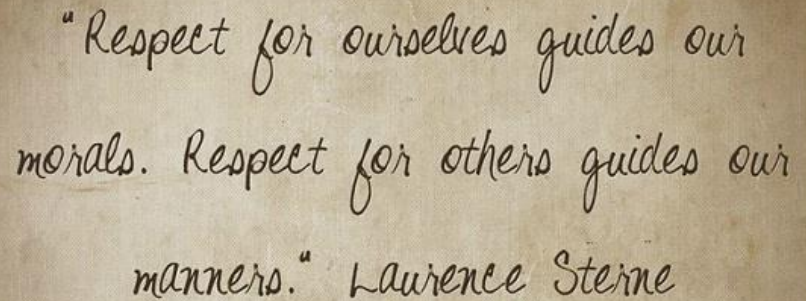 "Respect for ourselves guides our
morals. Respect for others guides our
manners." Laurence Sterne